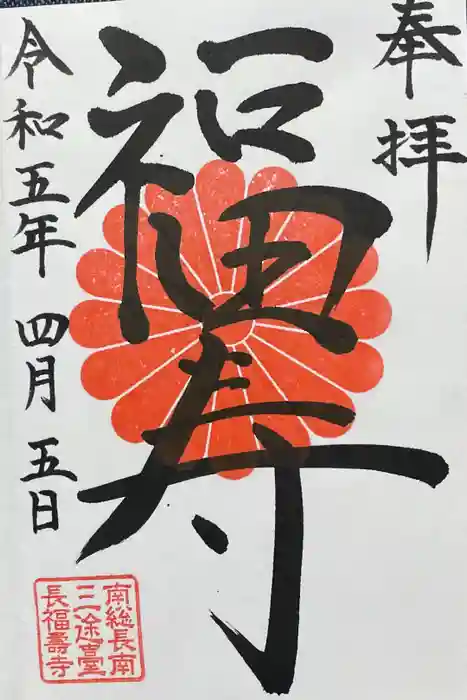 奉拝
福寿
令和五年 四月 五日
南総長南
三途臺
長福壽寺